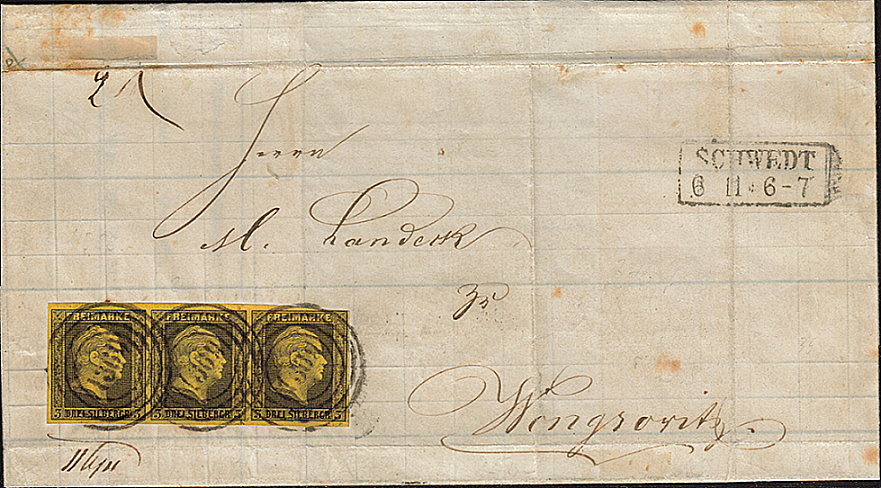 Herrn
SCHWEDT
6 11 · 6-7
M. Landeck
zu
FREIMARKE FREIMARKE FREIMARKE
3 DREI SILBERGR. 3 3 DREI SILBERGR. 3 3 DREI SILBERGR. 3
Wongrowitz